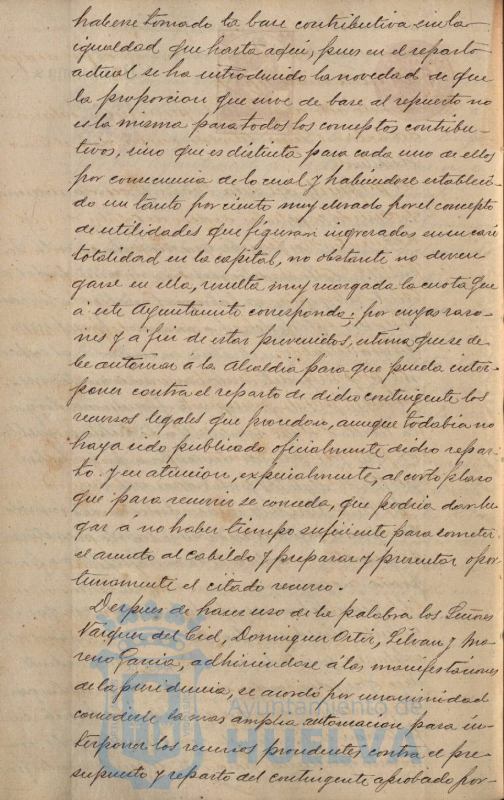 haberse tomado la base contributiva con la
igualdad que hasta aqui, pues en el reparto
actual se ha introducido la novedad de que
la proporcion que sirve de base al repuesto no
es la misma para todos los conceptos contribu-
tivos, sino que es distinta para cada uno de ellos
por consecuencia de lo cual y habiendose estableci-
do un tanto por ciento muy elevado por el concepto
de utilidades que figuran ingresadas en su casi
totalidad en la capital, no obstante no deven-
garse en ella, resulta muy recargada la cuota que
á este Ayuntamiento corresponde; por cuyas razo-
nes y á fin de estar prevenidos, estima que se de-
be autorizar á la Alcaldia para que pueda inter-
poner contra el reparto de dicho contingente los
recursos legales que procedan, aunque todabia no
haya sido publicado oficialmente dicho repar-
to. y en atencion, especialmente, al corto plazo
que para recurrir se conceda, que podria dar lu-
gar á no haber tiempo suficiente para someter
el asunto al Cabildo y preparar y presentar opor-
tunamente el citado recurso.
Despues de hacer uso de la palabra los Señores
Vazquez del Cid, Dominguez Ortiz, y Mo-
reno Garcia, adhiriendose á las manifestaciones
de la presidencia, se acordó por unanimidad
concederle la mas amplia autorizacion para in-
terponer los recursos procedentes contra el pre-
supuesto y reparto del contingente aprobado por-
Ayuntamiento de
HUELVA